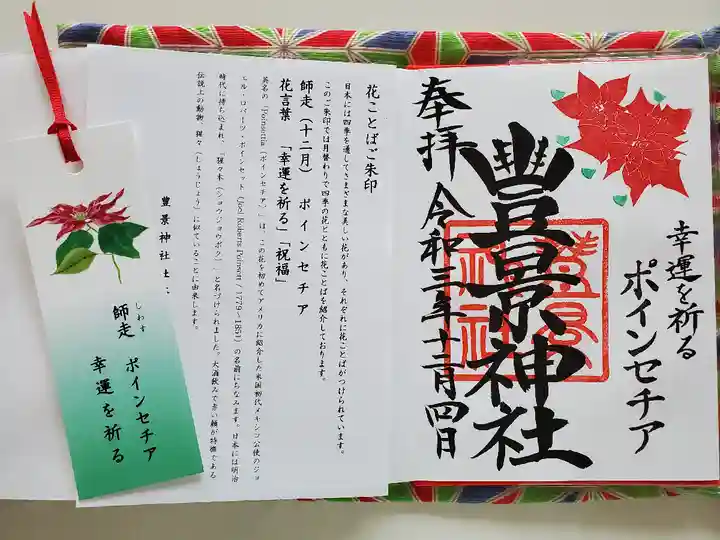 幸運を祈る
ポインセチア
豊景神社
奉拝 令和三年十二月四日
花ことばご朱印
日本には四季を通してさまざまな美しい花があり、それぞれに花ことばがつけられています。
このご朱印では月替わりで四季の花とともに花ことばを紹介しております。
師走(十二月) ポインセチア
花言葉 「幸運を祈る」「祝福」
英名の「Poinsettia(ポインセチア)」は、この花を初めてアメリカに紹介した米国初代メキシコ公使のジョ
エル・ロバーツ・ポインセット(Joel Roberts Poinsett / 1779~1851)の名前にちなみます。日本には明治
時代に持ち込まれ、「猩々木(ショウジョウボク)」と名づけられました。大酒飲みで赤い顔が特徴である
伝説上の動物、猩々(しょうじょう)に似ていることに由来します。
豊景神社
しわす
師走 ポインセチア
幸運を祈る